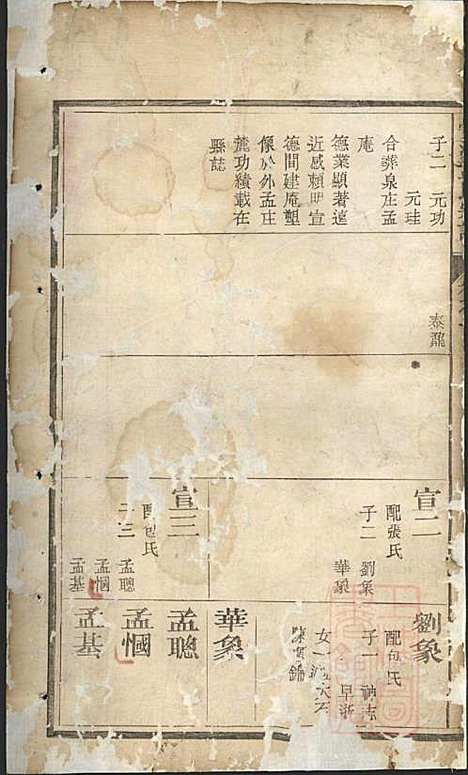 子二 元功
元珪
合葬泉庄孟
庵
德業顯著遠
近感賴明宣
德間建庵塑
像於外孟庄
麓功績載在
縣誌
泰鼐
宣二
配張氏
子二 劉象
華象
宣三
配包氏
子三 孟聰
孟慖
孟基
劉象
配包氏
子一
女一
華象
孟聰
孟慖
孟基